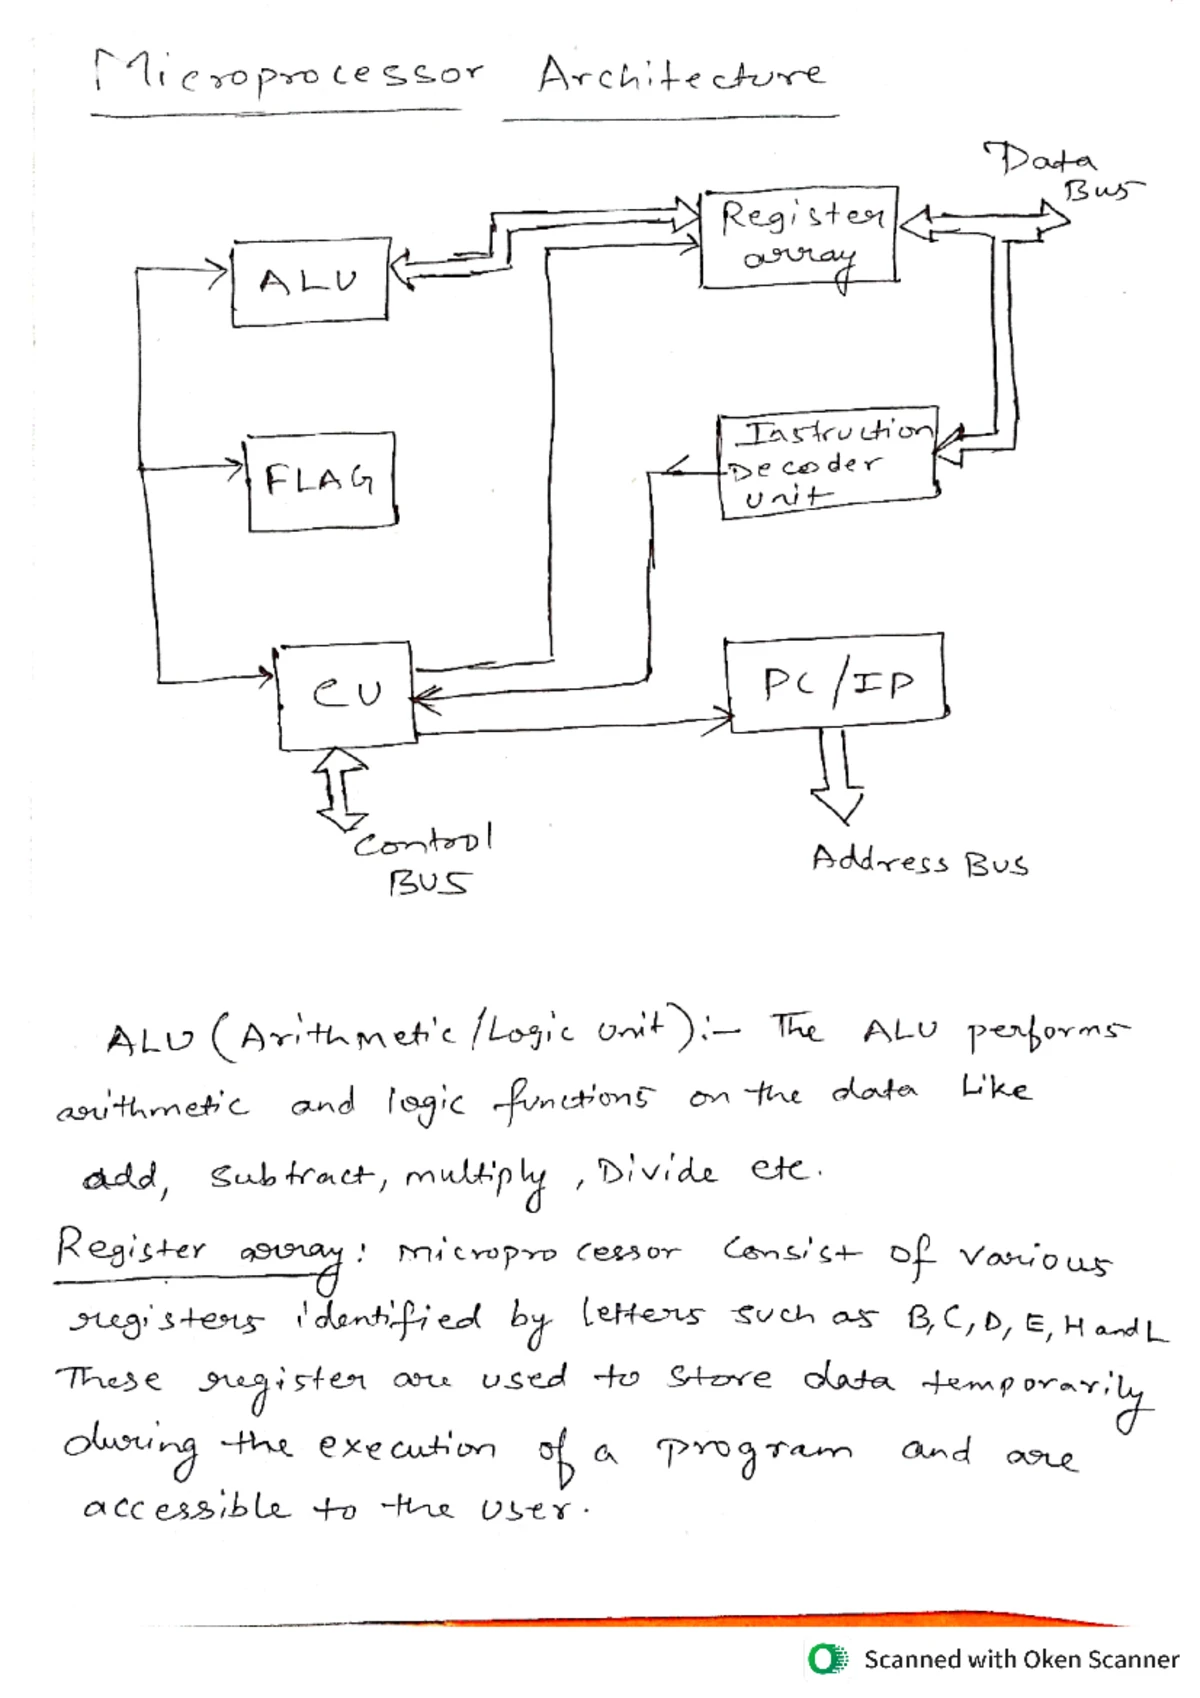 Microprocessor Architecture
Data
Bus
Register
array
ALU
Instruction
Decoder
unit
FLAG
CU
PC/IP
Control
BUS
Address Bus
ALU (Arithmetic/Logic unit):- The ALU performs
arithmetic and logic functions on the data Like
add, subtract, multiply, Divide etc.
Register array: Microprocessor Consist of various
registers identified by letters such as B, C, D, E, H and L
These register are used to store data temporarily
during the execution of a program and are
accessible to the user.
Scanned with Oken Scanner